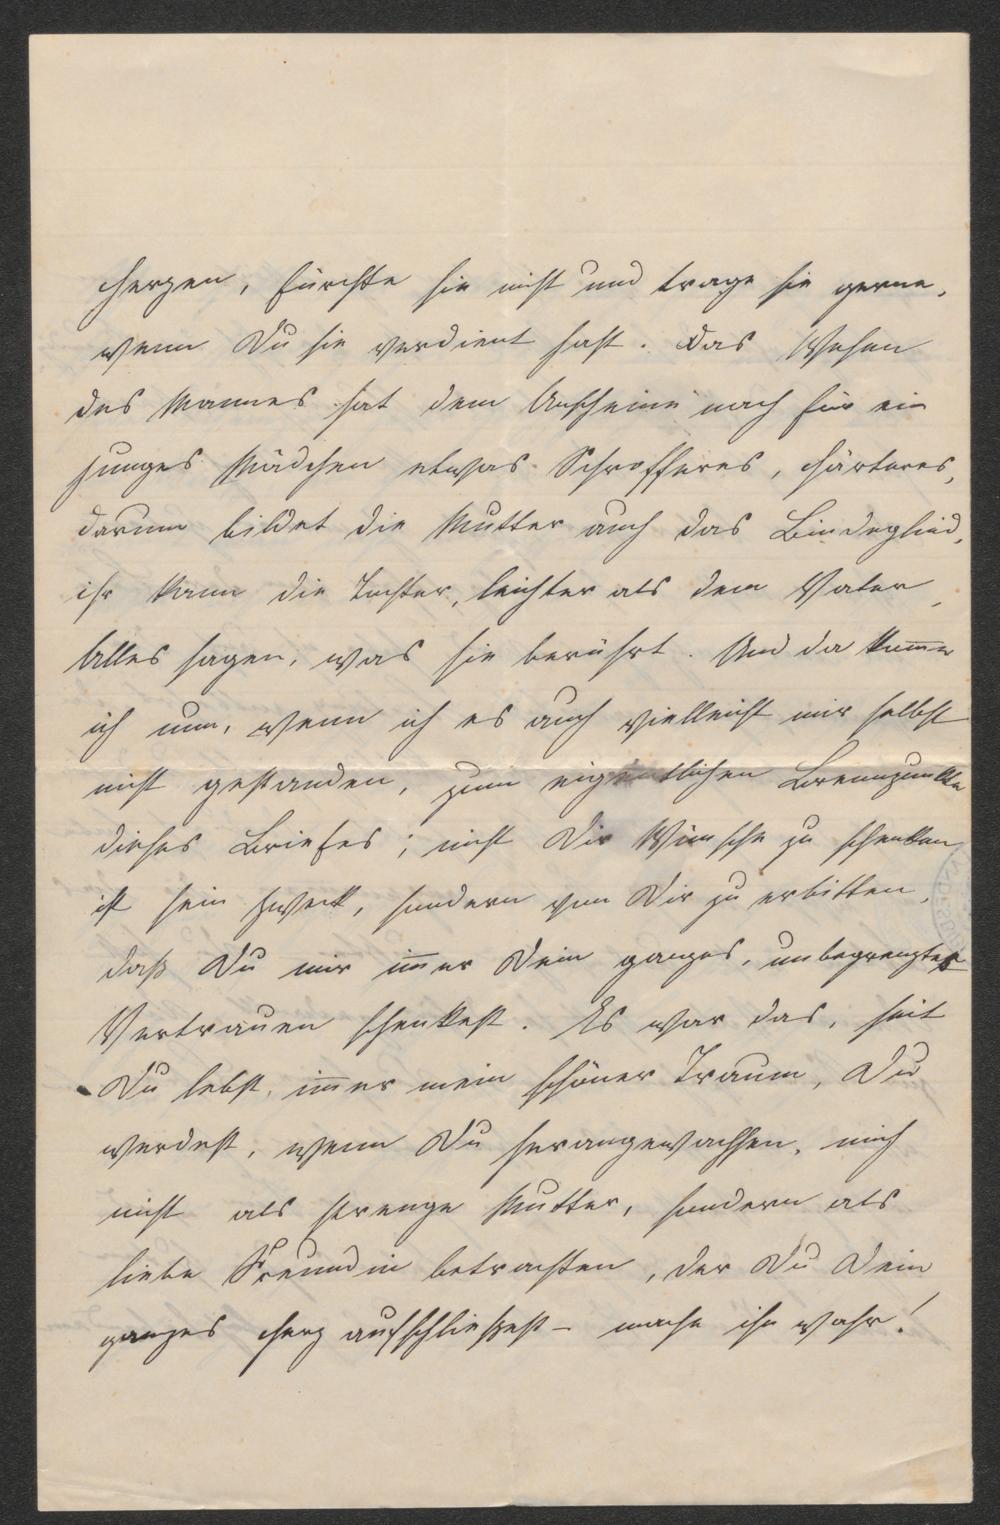 Herzen, fürchte sie nicht und trage sie gerne,
wenn Du sie verdient hast. Das Wesen
des Mannes hat dem Anscheine nach für ein
junges Mädchen etwas Schrofferes, Härteres,
darum bildet die Mutter auch das Bindeglied,
ihr kann die Tochter, leichter als dem Vater,
Alles sagen, was sie berührt. Und da kom̅e
ich nun, wenn ich es auch vielleicht mir selbst
nicht gestanden, zum eigentlichen Brennpunkte
dieses Briefes; nicht Dir Wünsche zu schenken
ist sein Zweck, sondern von Dir zu erbitten,
daß Du mir im̅er Dein ganzes, unbegrenztes
Vertrauen schenkest. Es war das, seit
Du lebst, im̅er mein schöner Traum, Du
werdest, wenn Du herangewachsen, mich
nicht als strenge Mutter, sondern als
liebe Freundin betrachten, der Du Dein
ganzes Herz aufschließest – mache ihn wahr!